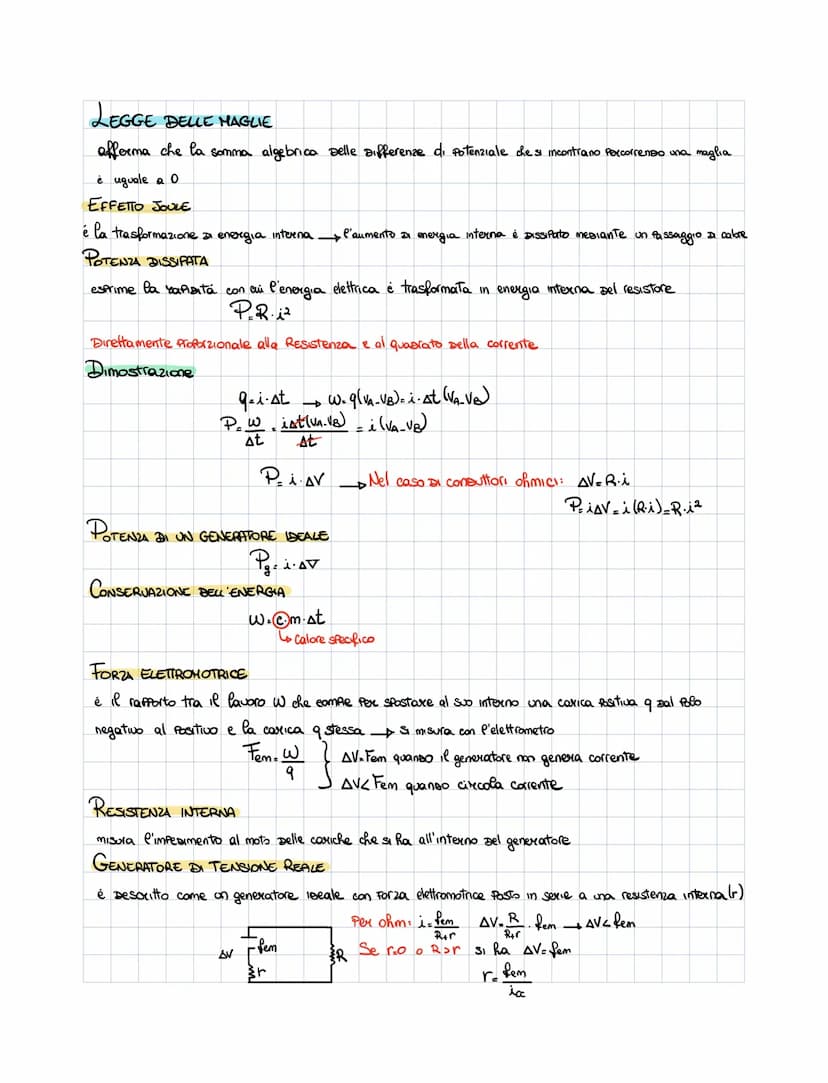 LEGGE DELLE MAGLIE
afferma che la somma algebrica delle differenze di potenziale che si incontrano percorrendo una maglia
è uguale a 0
EFFETTO JOULE
é la trasformazione di energia interna → l'aumento di energia interna é dissipato mediante un passaggio di calore
POTENZA DISSIPATA
esprime la rapidità con cui l'energia elettrica é trasformata in energia interna del resistore
P=R·i²
Direttamente proporzionale alla Resistenza e al quadrato della corrente
Dimostrazione
q=i·Δt → W=q(VA-VB)=i·Δt(VA-VB)
P=W/Δt = iΔt(VA-VB)/Δt = i(VA-VB)
P=i·ΔV → Nel caso di conduttori ohmici: ΔV=R·i
P=iΔV=i(R·i)=R·i²
POTENZA DI UN GENERATORE IDEALE
Pg=i·ΔV
CONSERVAZIONE DELL'ENERGIA
W=c·m·Δt
↳ calore specifico
FORZA ELETTROMOTRICE
é il rapporto tra il lavoro W che compie per spostare al suo interno una carica positiva q dal polo
negativo al positivo e la carica q stessa → si misura con l'elettrometro
Fem=W/q } ΔV=Fem quando il generatore non genera corrente
ΔV<Fem quando circola corrente
RESISTENZA INTERNA
misura l'impedimento al moto delle cariche che si ha all'interno del generatore
GENERATORE DI TENSIONE REALE
é descritto come un generatore ideale con forza elettromotrice posto in serie a una resistenza interna (r)
Per ohm: i=fem/R+r ΔV=R/R+r · fem → ΔV<fem
ΔV fem r R
Se r=0 o R>r si ha ΔV=fem
r=fem/icc